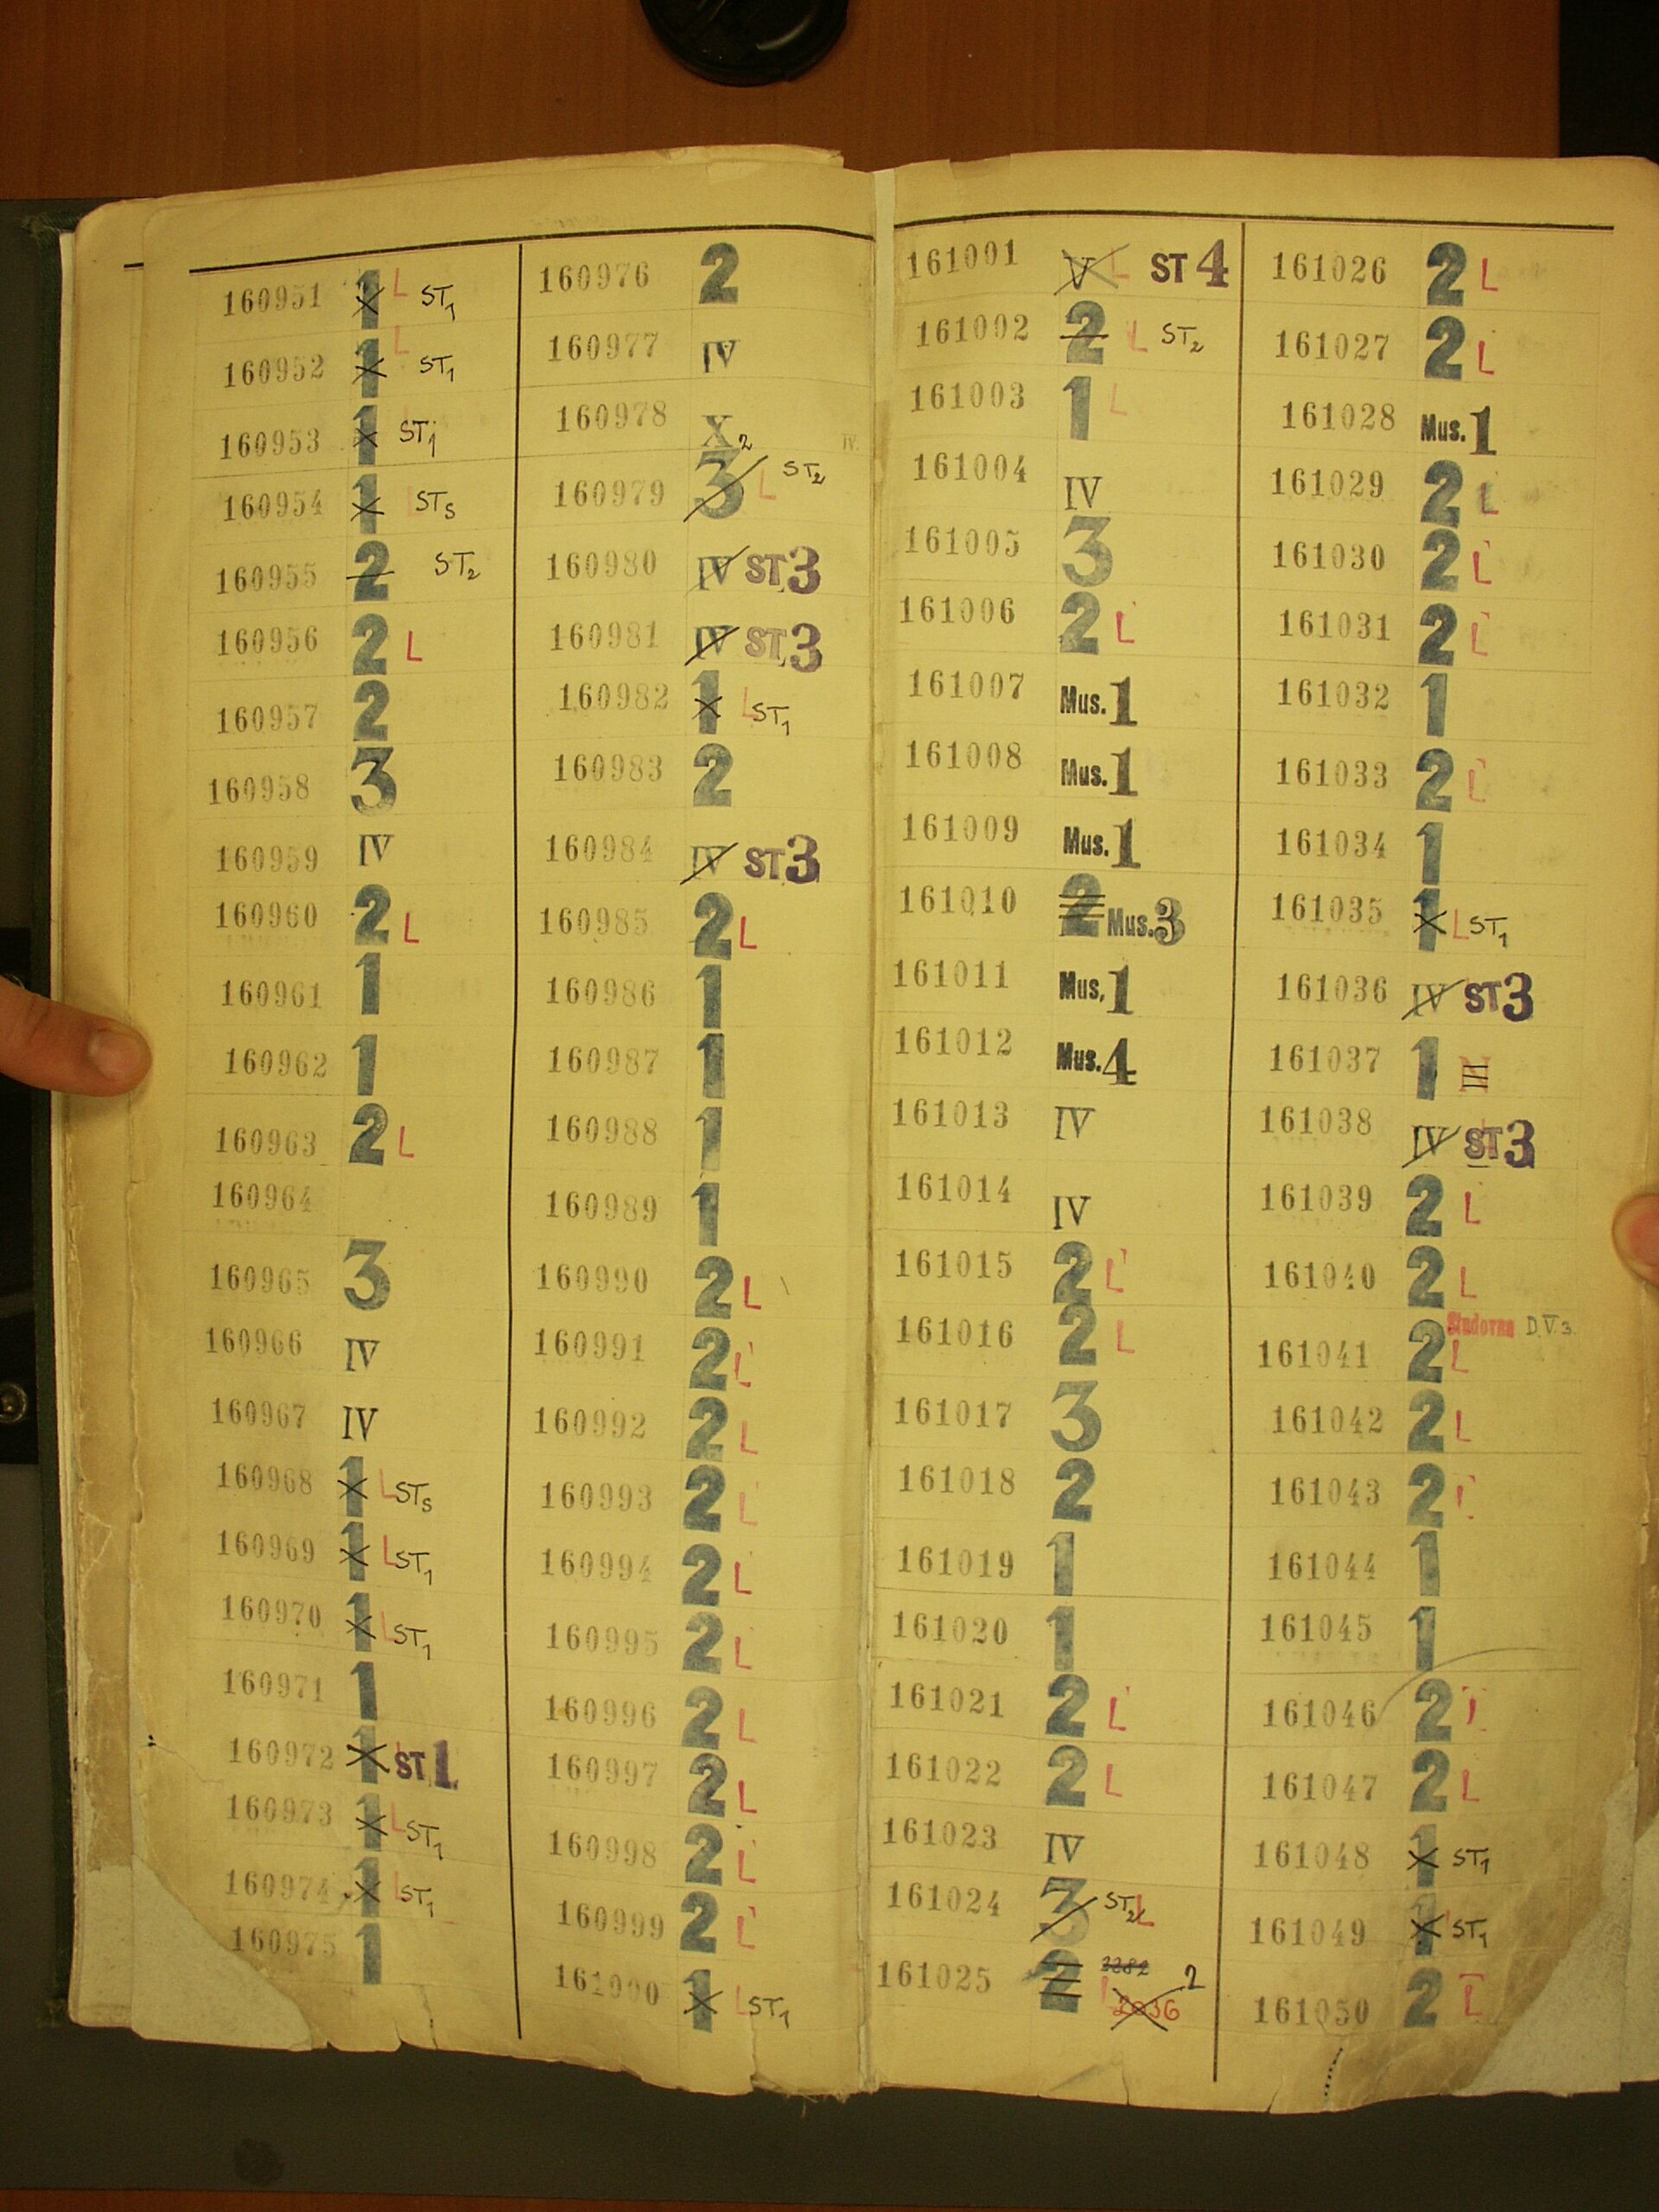 160951 1 L ST1
160952 1 L ST1
160953 1 ST1
160954 1 STS
160955 2 ST2
160956 2 L
160957 2
160958 3
160959 IV
160960 2 L
160961 1
160962 1
160963 2 L
160964
160965 3
160966 IV
160967 IV
160968 1 L STS
160969 1 L ST1
160970 1 L ST1
160971 1
160972 1 ST 1
160973 1 L ST1
160974 1 L ST1
160975 1
160976 2
160977 IV
160978 X 2 IV.
160979 3 L ST2
160980 IV ST 3
160981 IV ST 3
160982 1 L ST1
160983 2
160984 IV ST 3
160985 2 L
160986 1
160987 1
160988 1
160989 1
160990 2 L
160991 2 L
160992 2 L
160993 2 L
160994 2 L
160995 2 L
160996 2 L
160997 2 L
160998 2 L
160999 2 L
161000 1 L ST1
161001 V L ST 4
161002 2 L ST2
161003 1 L
161004 IV
161005 3
161006 2 L
161007 Mus. 1
161008 Mus. 1
161009 Mus. 1
161010 2 Mus. 3
161011 Mus. 1
161012 Mus. 4
161013 IV
161014 IV
161015 2 L
161016 2 L
161017 3
161018 2
161019 1
161020 1
161021 2 L
161022 2 L
161023 IV
161024 3 ST2 L
161025 2 2
2036
161026 2 L
161027 2 L
161028 Mus. 1
161029 2 L
161030 2 L
161031 2 L
161032 1
161033 2 L
161034 1
161035 1 L ST1
161036 IV ST 3
161037 1
161038 IV ST 3
161039 2 L
161040 2 L
Studovna D.V.3.
161041 2 L
161042 2 L
161043 2 L
161044 1
161045 1
161046 2 L
161047 2 L
161048 1 ST1
161049 1 L ST1
161050 2 L